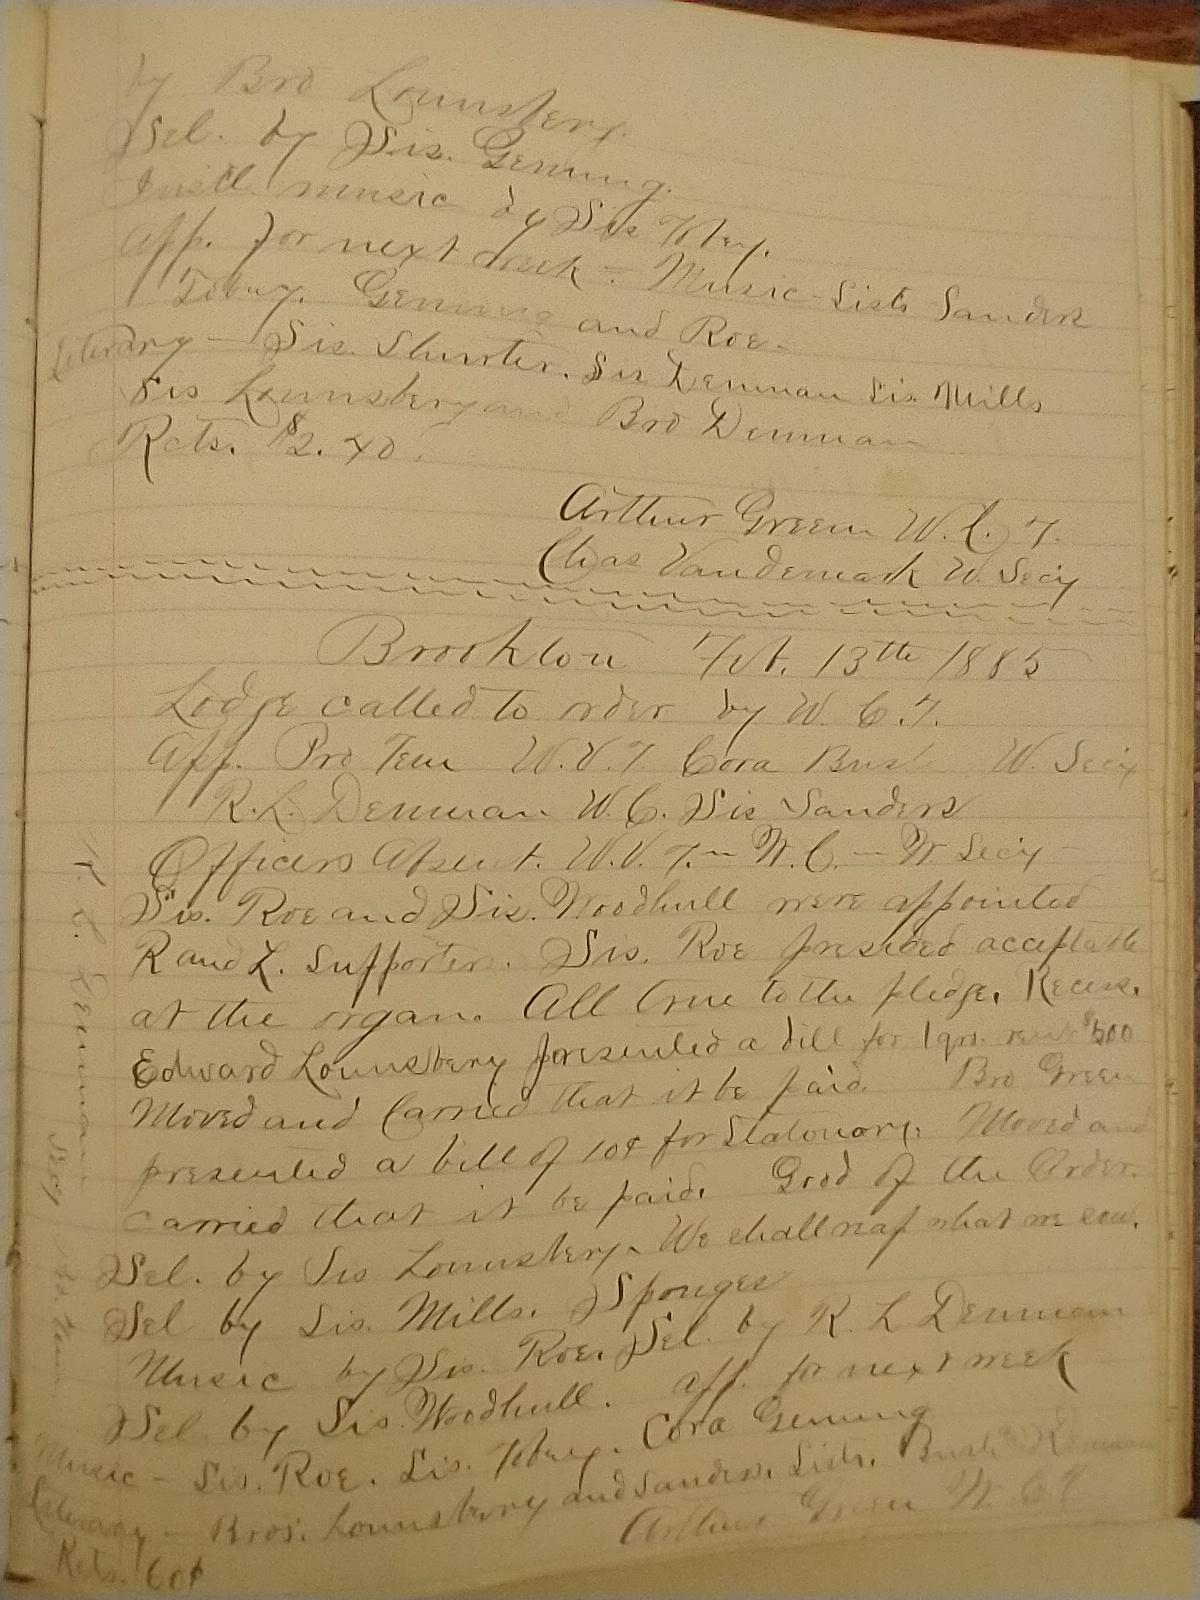 by Bro Lounsbery.
Sel. by Sis. Genung.
Instl. music by Sis Tobey.
App. for next week - Music - Sists Sanders
Tobey. Genung and Roe -
Literary - Sis. Shurter. Sis Denman Sis. Mills
Sis Lounsbery and Bro Denman
Rcts. $2.40.
Arthur Green W. C. T.
Chas Vandemark W. Secy
Brookton Feb. 13th 1885
Lodge called to order by W. C. T.
App. Pro Tem W. V. T Cora Bush W. Secy
R. L. Denman W. C. Sis Sanders
Officers Absent. W. V. T. - W. C. - W Secy -
Sis. Roe and Sis. Woodhull were appointed
R and L. Supporters. Sis. Roe presided
at the organ. All true to the pledge. Recess.
Edward Lounsbery presented a bill for 1 qrs. rent $500
Moved and Carried that it be paid. Bro Green
presented a bill of 10¢ for Stationary. Moved and
carried that it be paid. Good of the Order.
Sel. by Sis Lounsbery. We shall reap what we sow.
Sel by Sis. Mills. Sponges
Music by Sis. Roe. Sel. by R. L Denman
Sel. by Sis. Woodhull. app. for next week
Music - Sis. Roe. Sis. Tobey. Cora Genung
Literary - Bros. Lounsbery and Sanders. Sists. Bush
Arthur Green W. C. T
Rcts. 60¢
Denman Secy